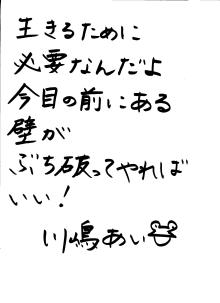 生きるために
必要なんだよ
今目の前にある
壁が
ぶち破ってやれば
いい!
川嶋あい